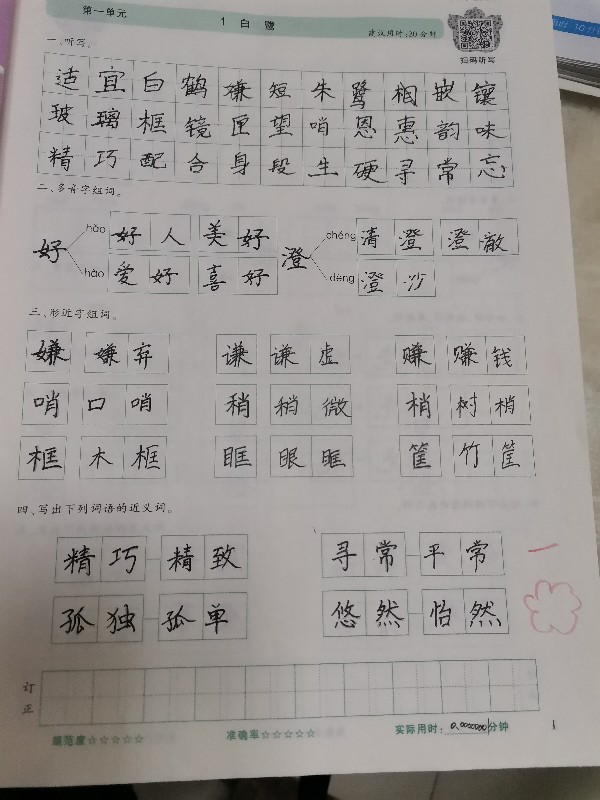 第一单元
1 白 鹭
建议用时:20分钟
扫码听写
一、听写。
适 宜 白 鹤 嫌 短 朱 鹭 相 嵌 镶
玻 璃 框 镜 匣 望 哨 恩 惠 韵 味
精 巧 配 合 身 段 生 硬 寻 常 忘
二、多音字组词。
好 hǎo 好人 美好 hào 爱好 喜好
澄 chéng 清澄 澄澈 dèng 澄
三、形近字组词。
嫌 嫌弃 谦 谦虚 赚 赚钱
哨 口哨 稍 稍微 梢 树梢
框 木框 眶 眼眶 筐 竹筐
四、写出下列词语的近义词。
精巧—精致 寻常—平常
孤独—孤单 悠然—怡然
订正
规范度☆☆☆☆☆ 准确率☆☆☆☆☆ 实际用时: 分钟 1